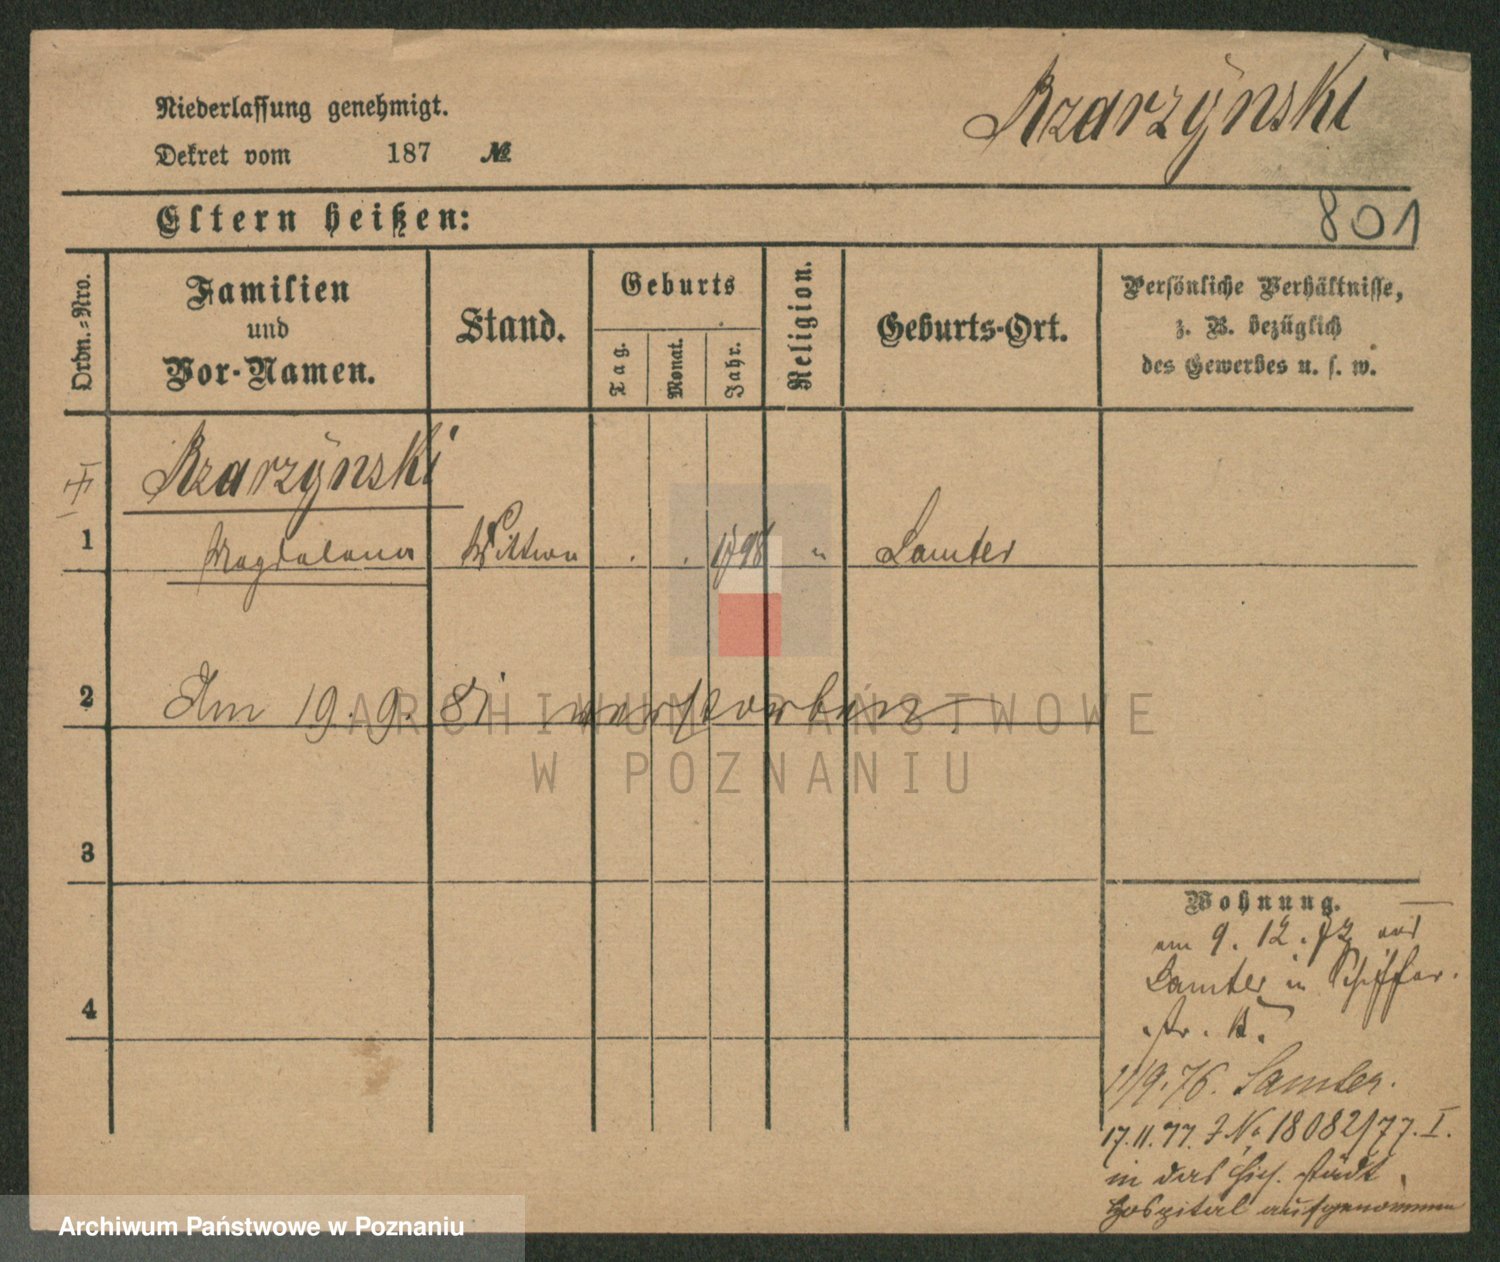 Niederlassung genehmigt.
Rzarzÿnski
Dekret vom 187 №
Eltern heißen:
801
Ordn.=Nro.
Familien
und
Vor-Namen.
Stand.
Geburts
Tag.
Monat.
Jahr.
Religion.
Geburts-Ort.
Persönliche Verhältnisse,
z. B. bezüglich
des Gewerbes u. s. w.
Rzarzÿnski
1 Magdalena Wittwe . . 1798 " Samter
2 Am 19. 9. 81 verstorben
3
4
Wohnung.
am 9. 12. 72 aus
Samter in Schiffer-
str.
1/9. 76. Samter.
17. 11. 77. J No 18082/77. I.
in das hies. städt.
Hospital aufgenommen
ARCHIWUM PAŃSTWOWE
W POZNANIU
Archiwum Państwowe w Poznaniu